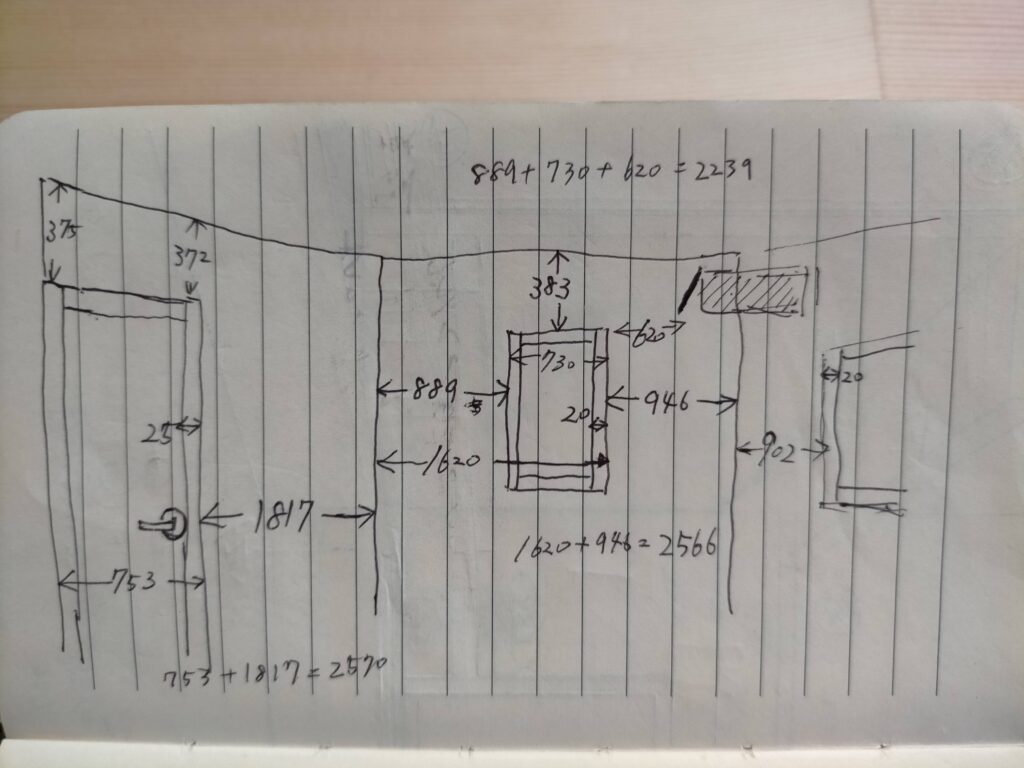 889+730+620=2239
375
372
383
620
730
889
20
946
20
25
1620
902
1817
1620+946=2566
753
753+1817=2570